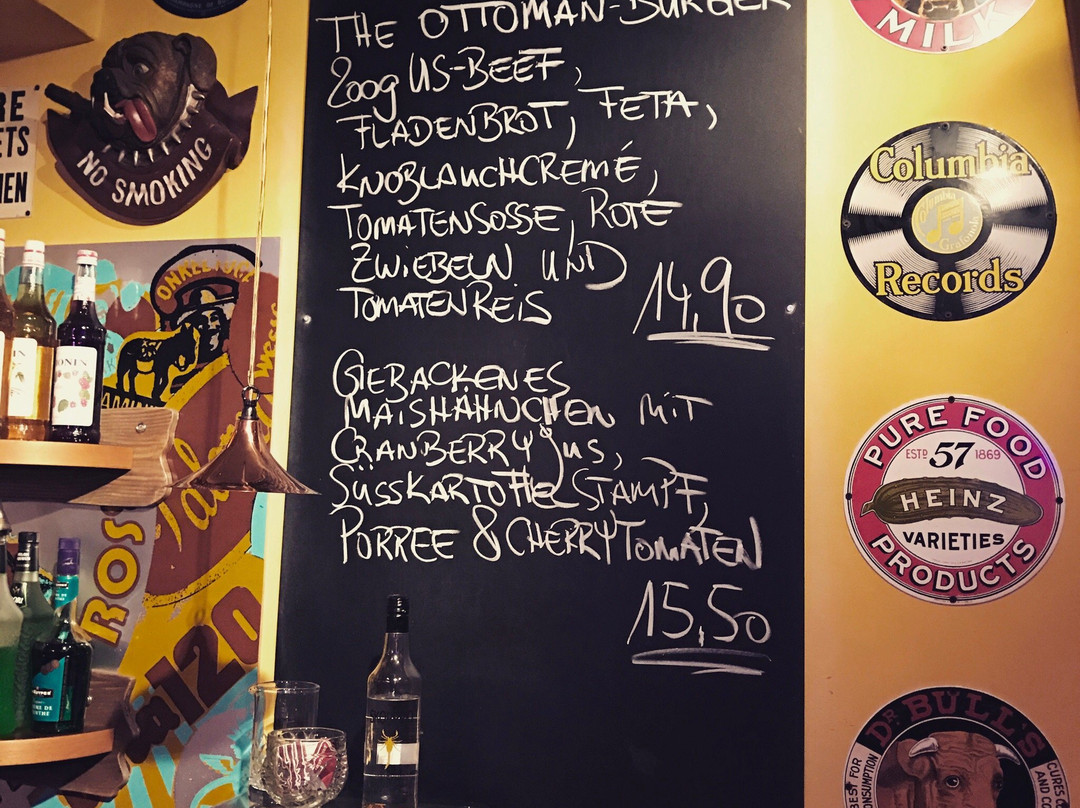 THE OTTOMAN-BURGER
200g US-BEEF,
FLADENBROT, FETA,
KNOBLAUCHCREMÉ,
TOMATENSOSSE, ROTE
ZWIEBELN UND
TOMATENREIS
14,90
GEBACKENES
MAISHÄHNCHEN MIT
CRANBERRYjus,
SÜSSKARTOFFELSTAMPF,
PORREE & CHERRYTOMATEN
15,50
NO SMOKING
MILK
Columbia
Columbia
Grafonola
Records
PURE FOOD
ESTD 57 1869
HEINZ
VARIETIES
PRODUCTS
DR BULL'S
BEST FOR
CONSUMPTION
CURES
AND
ROS
120